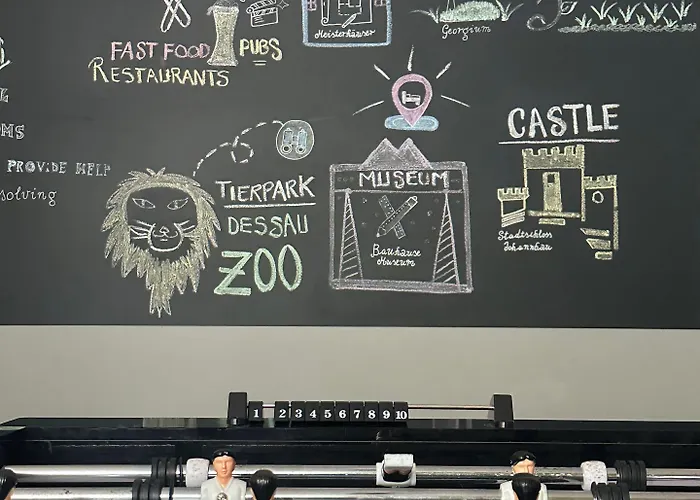 Meisterhäuser
Georgium
FAST FOOD
PUBS
RESTAURANTS
CASTLE
PROVIDE HELP
solving
MUSEUM
TIERPARK
DESSAU
ZOO
Bauhause
Museum
Stadtschloss
Johannbau
1 2 3 4 5 6 7 8 9 10